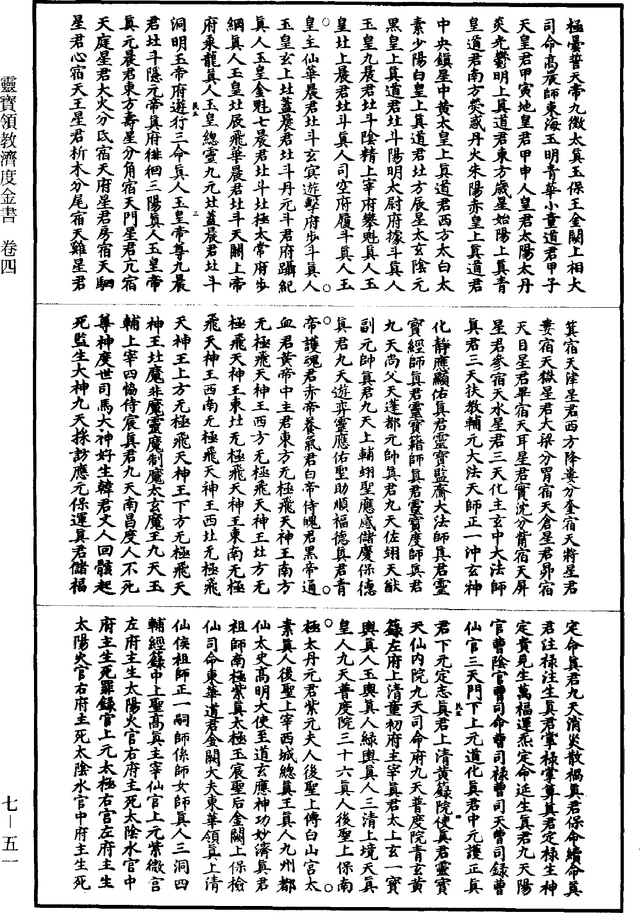 極曇誓天帝九微太真玉保王金闕上相大
司命高晨師東海玉明青華小童道君甲子
天皇君甲寅地皇君甲申人皇君太陽太丹
炎光鬱明上真道君東方歲星始陽上真青
皇道君南方熒惑丹火朱陽赤皇上真道君
中央鎮星中黄太皇上真道君西方太白太
素少陽白皇上真道君北方辰星太玄陰元
黑皇上真道君北斗陽明太尉府掾斗真人
玉皇九晨君北斗陰精上宰府攀魁真人玉
皇北上晨君北斗真人司空府履斗真人玉
皇主仙華晨君北斗玄冥遊擊府步斗真人
玉皇玄上北蓋晨君北斗丹元斗君府躡紀
真人玉皇金魁七晨君北斗北極太常府步
綱真人玉皇北辰飛華晨君北斗天關上帝
府乘龍真人玉皇總靈九元北蓋晨君北斗
洞明玉帝府遊行三命真人玉皇帝尊九晨
君北斗隱元帝真府徘徊三陽真人玉皇帝
真元晨君東方壽星分角宿天門星君亢宿
天庭星君大火分氐宿天府星君房宿天駟
星君心宿天王星君析木分尾宿天雞星君
箕宿天星君西方降婁分奎宿天將星君
婁宿天獄星君大梁分胃宿天倉星君昴宿
天目星君畢宿天耳星君實沈分觜宿天屏
星君參宿天水星君三天化主玄中大法師
真君三天扶教輔元大法天師正一沖玄神
化靜應顯佑真君靈寶監齋大法師真君靈
寶經師真君靈寶籍師真君靈寶度師真君
九天尚父天蓬都元帥真君九天佐翊天猷
副元帥真君九天上輔翊聖應感儲慶保德
真君九天遊奕靈應佑聖助順福德真君青
帝護魂君赤帝養氣君白帝侍魄君黑帝通
血君黄帝中主君東方无極飛天神王南方
无極飛天神王西方无極飛天神王北方无
極飛天神王東北无極飛天神王東南无極
飛天神王西南无極飛天神王西北无極飛
天神王上方无極飛天神王下方无極飛天
神王北魔非魔靈魔制魔太玄魔王九天玉
輔上宰四協侍宸真君九天南昌度人不死
尊神度世司馬大神好生韓君丈人回骸起
死監生大神九天採訪應元保運真君儲福
定命真君九天消災散禍真君保命續命真
君注禄注生真君掌禄掌筭真君定禄生神
定貴見生萬福運炁定命延生真君九天陽
官曹陰官曹司命曹司禄曹司天曹司録曹
仙官三天門下上元道化真君中元護正真
君下元定志真君上清黄籙院使真君靈寶
天仙内院九天司命府九天普度院青玄黄
籙左府上清童初府主宰真君太上玄一寶
輿真人玉輿真人緑輿真人三清上境天真
皇人九天普度院三十六真人後聖上保南
極太丹元君紫元夫人後聖上傅白山宫太
素真人後聖上宰西城總真王真人九州都
仙太史高明大使至道玄應神功妙濟真君
祖師南極紫真太極玉晨聖后金闕上保檢
仙司命東華道君金闕大夫東華領真上清
仙侯祖師正一嗣師係師女師真人三洞四
輔經籙中上聖高真主宰仙官上元紫微宫
左府主生太陽火官右府主死太陰水官中
府主生死罪録官上元太極右宫左府主生
太陽火官右府主死太陰水官中府主生死
靈寶領教濟度金書 卷四
七—五一